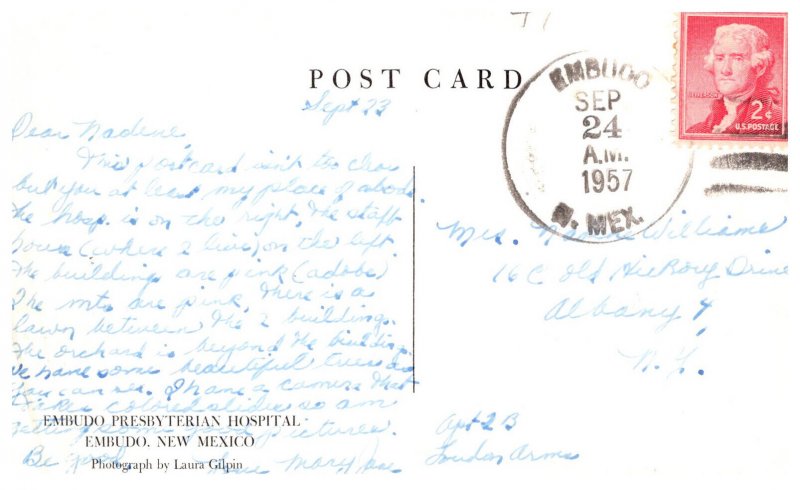 POST CARD
Sept 23
Dear Nadene,
This postcard isn't too clear
but you at least my place of abode
The hosp. is on the right, the staff
house (where I live) on the left.
The building are pink (adobe)
The mts are pink, There is a
lawn between the 2 buildings.
The orchard is beyond the building.
We have some beautiful trees as
you can see. I have a camera that
takes colored slides so am
getting some good pictures.
Be good, Love Mary Jane
EMBUDO PRESBYTERIAN HOSPITAL
EMBUDO, NEW MEXICO
Photograph by Laura Gilpin
EMBUDO
SEP
24
A.M.
1957
N. MEX.
JEFFERSON
2¢
U.S. POSTAGE
Mrs. Williams
16 C Old Hickory Drive
Albany 4,
N.Y.
Apt 2B
Loudon Arms